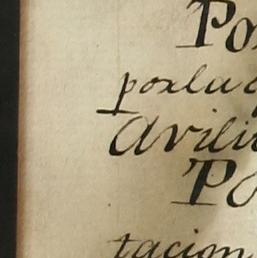 Po
porla
Avili
Po
tacion